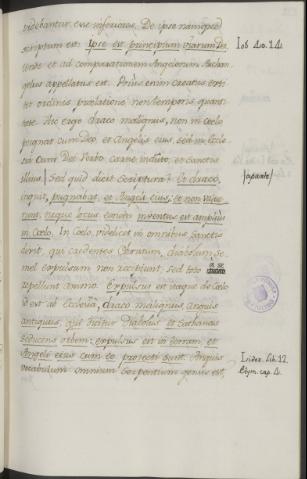 videbantur esse inferiores. De ipso namque
scriptum est: Ipse est principium viarum Dei,
Iob 40. 14.
ferde et ad comparationem Angelorum Archan
gelus appellatus est. Prius enim creatus exti
tit ordinis praelatione non temporis quanti
tate. Hic ergo draco malignus, non in coelo
pugnat cum Deo et Angelis eius, sed in Eccle
sia cum Dei Verbo carne induto, et Sanctis
illius. Sed quid dicit Scriptura? Et draco,
inquit, pugnabat, et Angeli eius, et non value
runt, neque locus eorum inventus est amplius
in Coelo. In Coelo, videlicet in omnibus Sanctis
dicit, qui credentes Christum, diabolum se
mel expulsum non recipiunt, sed toto
a se
repellunt animo. Expulsus est itaque de Coelo
id est ab Ecclesia, draco malignus, anguis
antiquus, qui dicitur Diabolus et Sathanas
seducens orbem: expulsus est in terram, et
Angeli eius cum eo projecti sunt. Anguis
Isidor. lib. 12.
vocabulum omnium serpentium genus est,
Etym. cap. 4.